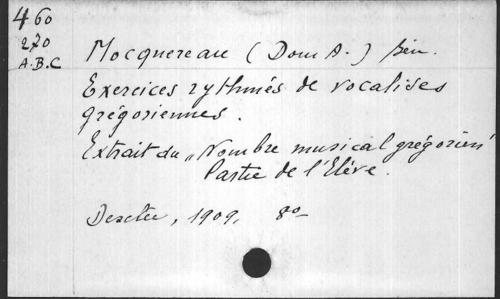 460
270
A.B.C
Mocquereau (Dom A.) ben.
Exercices rythmés de vocalises
grégoriennes.
Extrait du „Nombre musical grégorien"
Partie de l'Elève.
Desclée, 1909, 8o